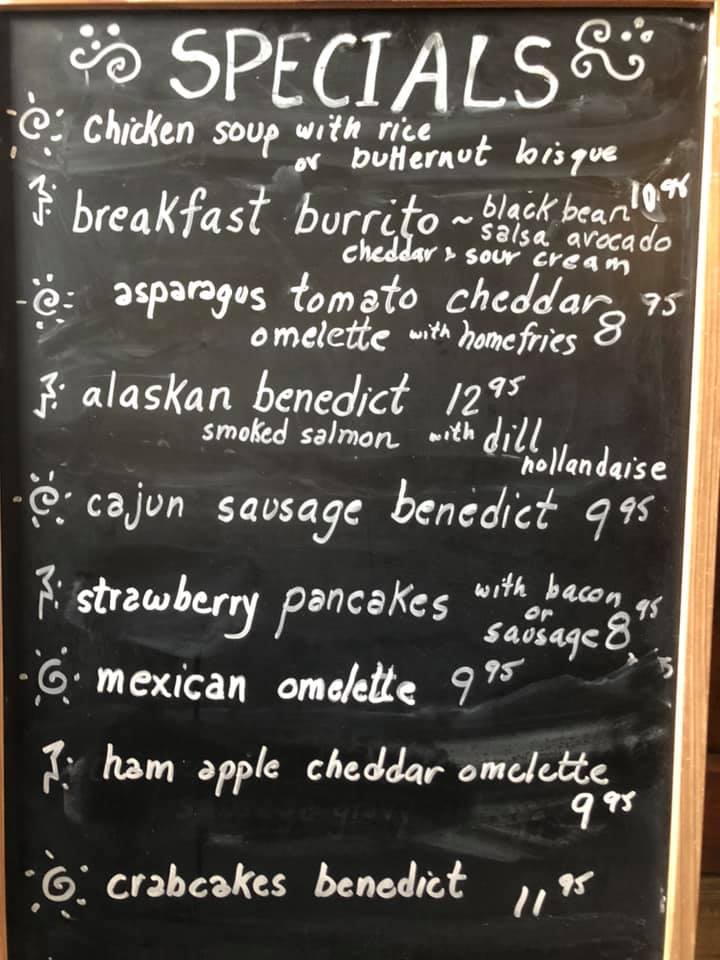 SPECIALS
chicken soup with rice
or butternut bisque
breakfast burrito ~ black bean 10.95
salsa avocado
cheddar & sour cream
asparagus tomato cheddar
omelette with homefries 8 95
alaskan benedict 12 95
smoked salmon with dill
hollandaise
cajun sausage benedict 9 95
strawberry pancakes with bacon
or
sausage 8 95
mexican omelette 9 95
ham apple cheddar omelette
9 95
crabcakes benedict 11 95